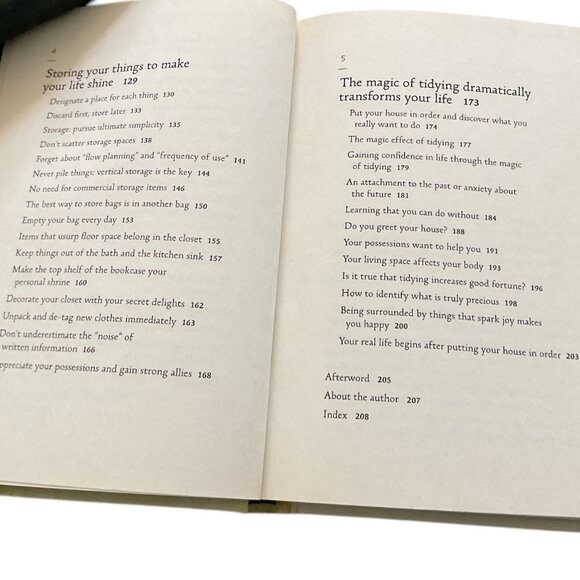 4
Storing your things to make
your life shine 129
Designate a place for each thing 130
Discard first, store later 133
Storage: pursue ultimate simplicity 135
Don't scatter storage spaces 138
Forget about "flow planning" and "frequency of use" 141
Never pile things: vertical storage is the key 144
No need for commercial storage items 146
The best way to store bags is in another bag 150
Empty your bag every day 153
Items that usurp floor space belong in the closet 155
Keep things out of the bath and the kitchen sink 157
Make the top shelf of the bookcase your
personal shrine 160
Decorate your closet with your secret delights 162
Unpack and de-tag new clothes immediately 163
Don't underestimate the "noise" of
written information 166
ppreciate your possessions and gain strong allies 168
5
The magic of tidying dramatically
transforms your life 173
Put your house in order and discover what you
really want to do 174
The magic effect of tidying 177
Gaining confidence in life through the magic
of tidying 179
An attachment to the past or anxiety about
the future 181
Learning that you can do without 184
Do you greet your house? 188
Your possessions want to help you 191
Your living space affects your body 193
Is it true that tidying increases good fortune? 196
How to identify what is truly precious 198
Being surrounded by things that spark joy makes
you happy 200
Your real life begins after putting your house in order 203
Afterword 205
About the author 207
Index 208